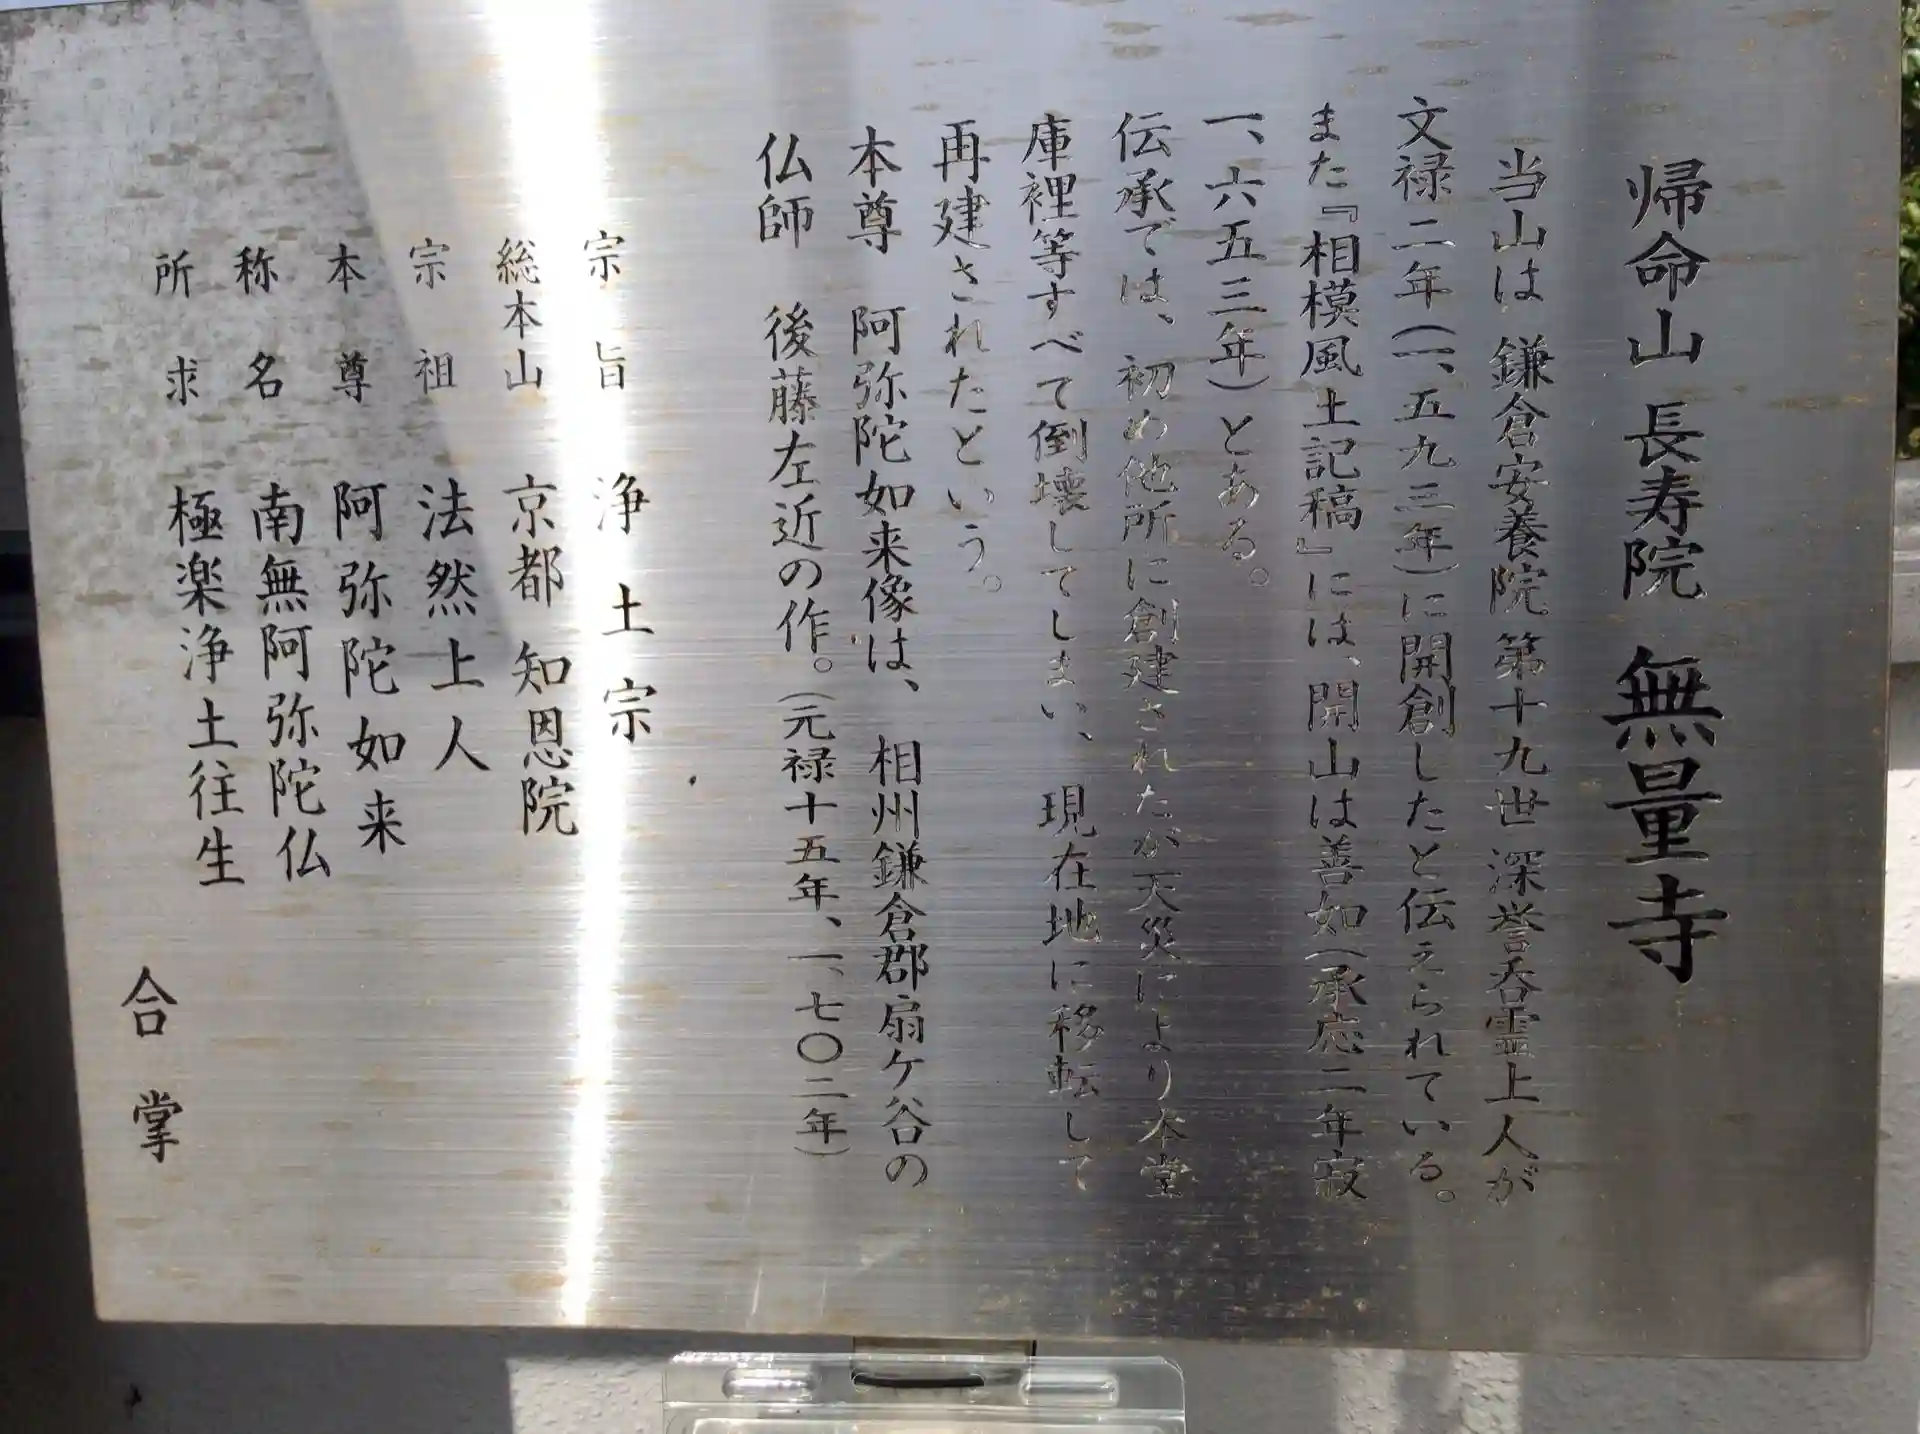 帰命山 長寿院 無量寺
当山は 鎌倉安養院第十九世深誉呑霊上人が
文禄二年(一、五九三年)に開創したと伝えられている。
また『相模風土記稿』には、開山は善如(承応二年寂
一、六五三年)とある。
伝承では、初め他所に創建されたが天災により本堂
庫裡等すべて倒壊してしまい、現在地に移転して
再建されたという。
本尊 阿弥陀如来像は、相州鎌倉郡扇ケ谷の
仏師 後藤左近の作。(元禄十五年、一、七〇二年)
宗旨 浄土宗
総本山 京都 知恩院
宗祖 法然上人
本尊 阿弥陀如来
称名 南無阿弥陀仏
所求 極楽浄土往生
合掌